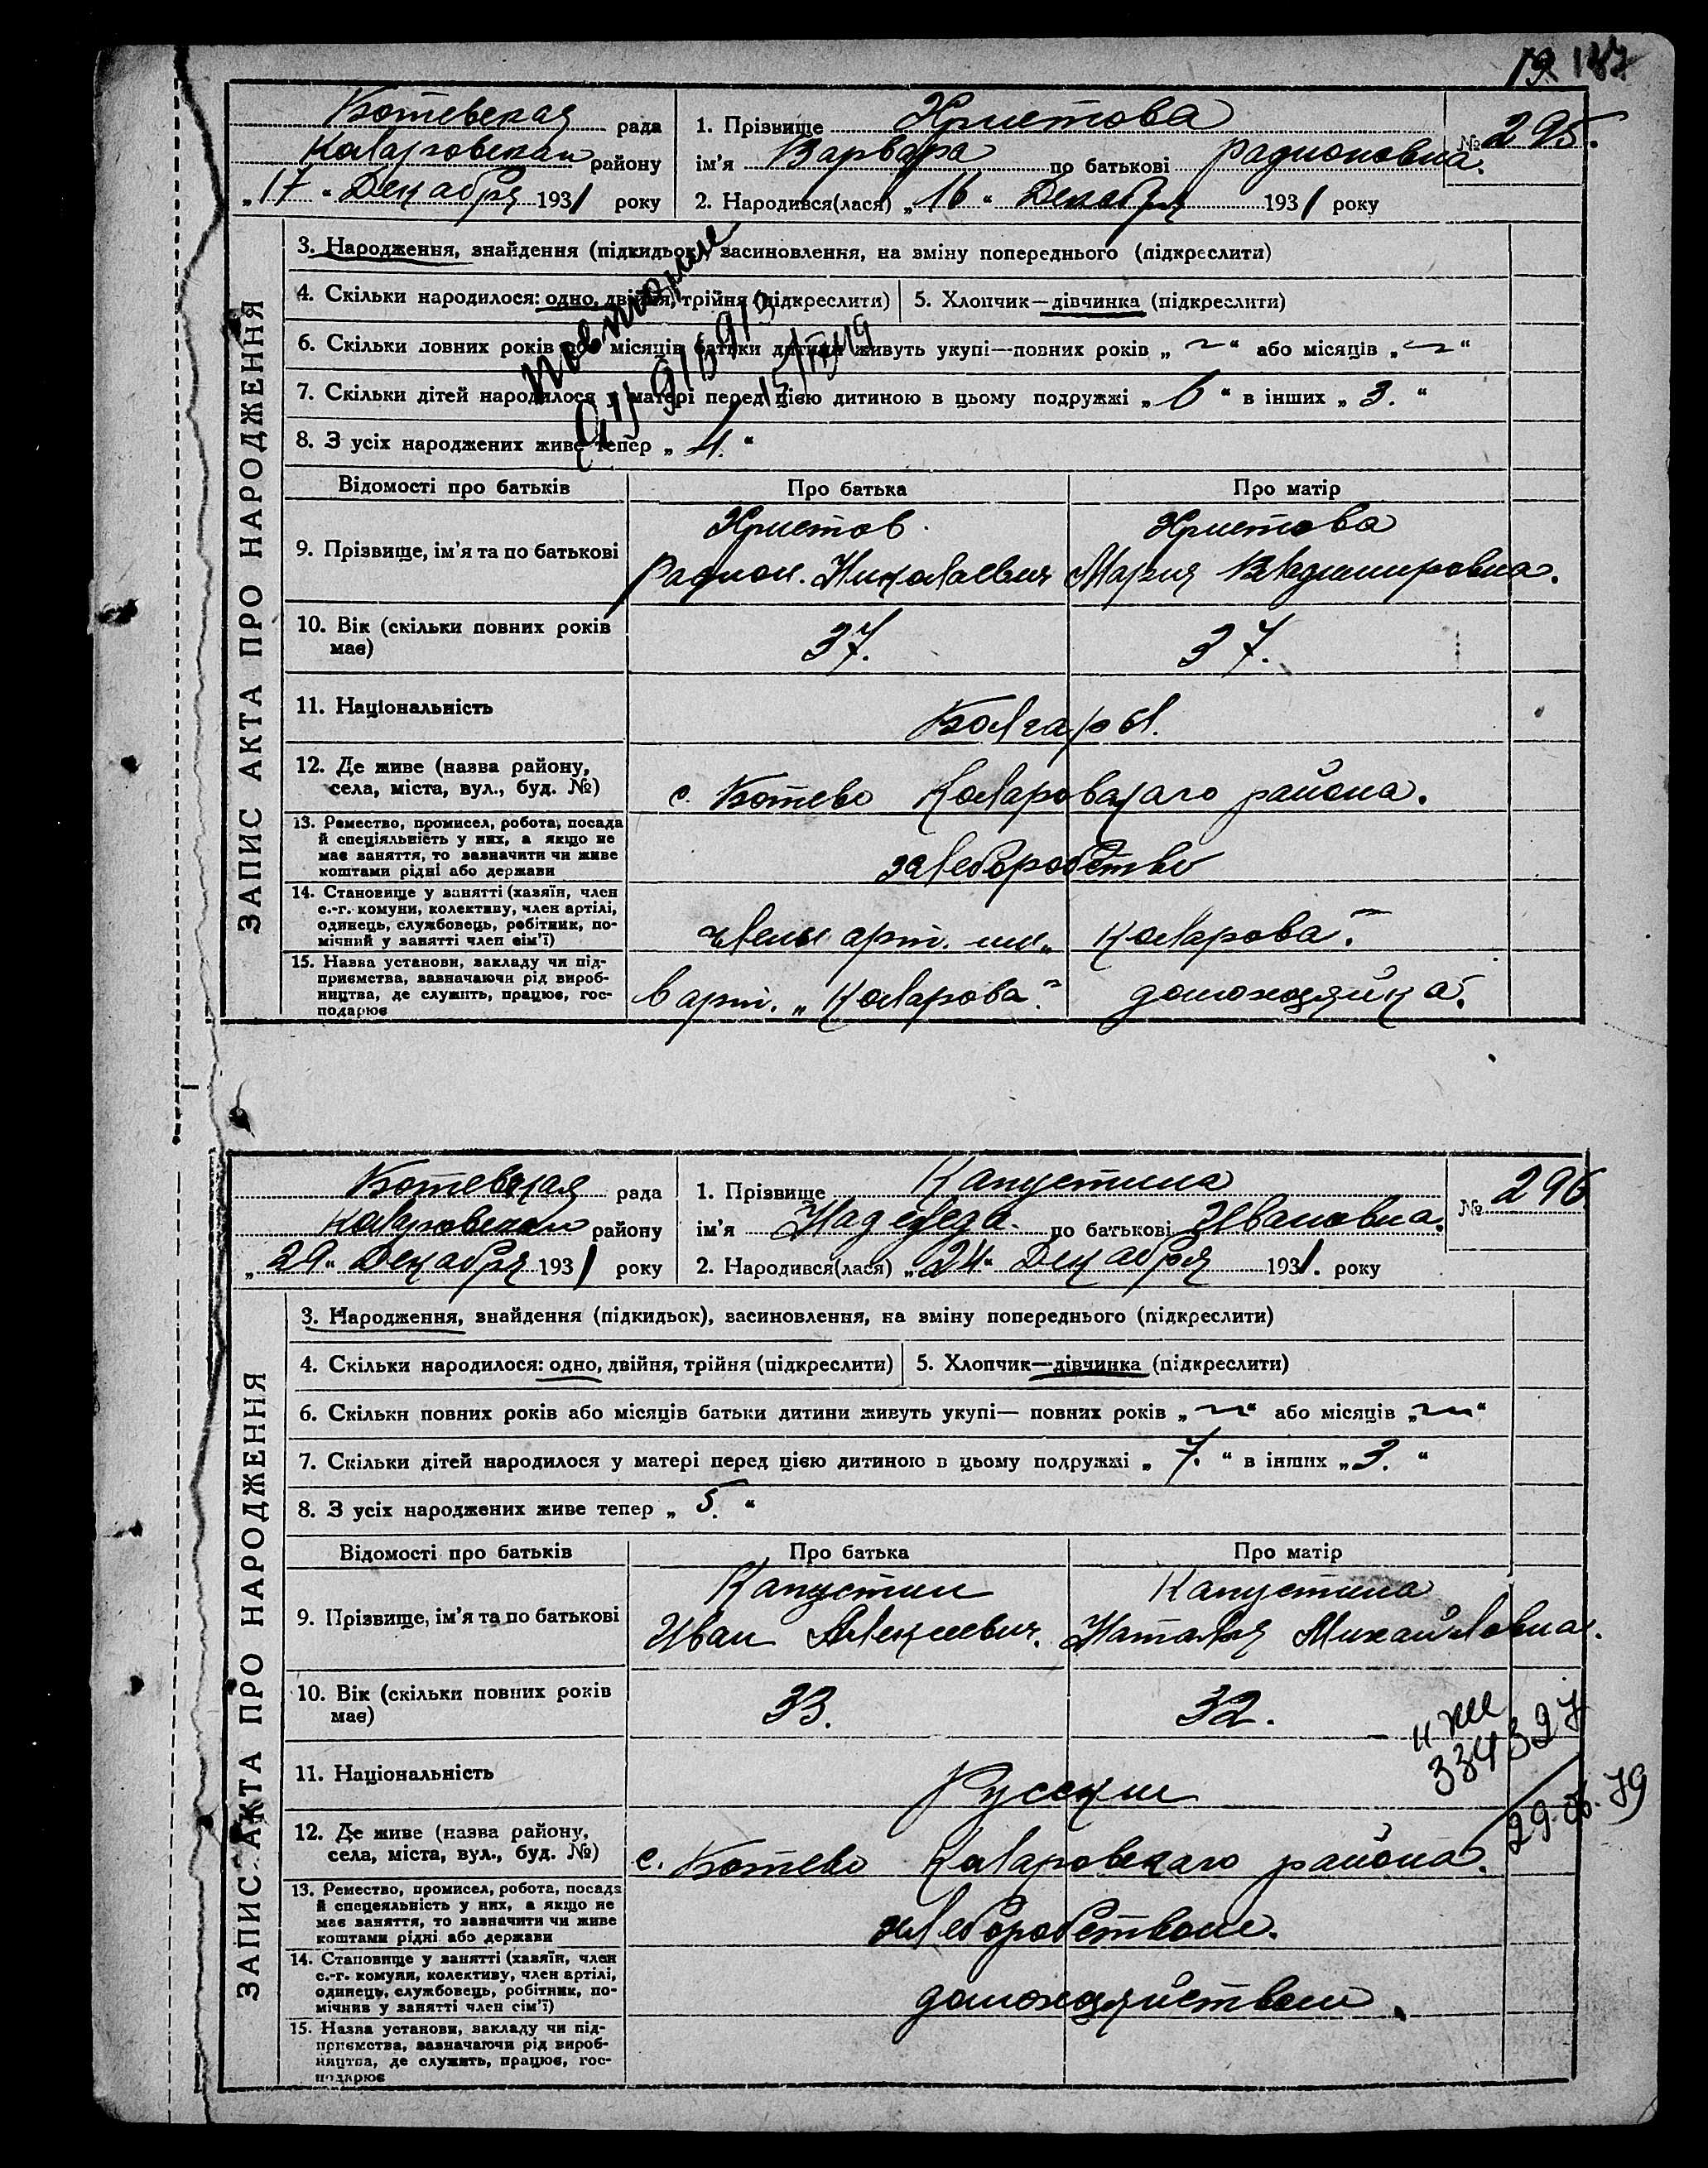 Ботевская рада
Коларовскаи району
„17“ Декабря 1931 року
1. Прізвище Христова
ім'я Варвара по батькові Радионовна.
2. Народився(лася) „16“ Декабря 1931 року
№ 295.
ЗАПИС АКТА ПРО НАРОДЖЕННЯ
3. Народження, знайдення (підкидьок), засиновлення, на зміну попереднього (підкреслити)
4. Скільки народилося: одно, двійня, трійня (підкреслити) 5. Хлопчик—дівчинка (підкреслити)
6. Скільки повних років або місяців батьки дитини живуть укупі—повних років „ “ або місяців „ “
7. Скільки дітей народилося у матері перед цією дитиною в цьому подружжі „6“ в інших „3.“
8. З усіх народжених живе тепер „4.“
Повторное
Відомості про батьків Про батька Про матір
9. Прізвище, ім'я та по батькові
Христов. Христова
Радион. Николаевич Мария Владимировна.
10. Вік (скільки повних років
має)
37. 37.
11. Національність
Болгары.
12. Де живе (назва району,
села, міста, вул., буд. №)
с. Ботево Коларовскаго района.
13. Ремество, промисел, робота, посада
й спеціяльність у них, а якщо не
має заняття, то зазначити чи живе
коштами рідні або держави
хлеборобство
14. Становище у занятті (хазяїн, член
с.-г. комуни, колективу, член артілі,
одинець, службовець, робітник, по-
мічний у занятті член сім'ї)
члены арт. им „Коларова“.
15. Назва установи, закладу чи під-
приємства, зазначаючи рід вироб-
ництва, де служить, працює, гос-
подарює
в арт. „Коларова“. домохозяйка.
Ботевская рада
Коларовскаи району
„29“ Декабря 1931 року
1. Прізвище Капустина
ім'я Надежда. по батькові Ивановна.
2. Народився(лася) „24“ Декабря 1931. року
№ 296
ЗАПИС АКТА ПРО НАРОДЖЕННЯ
3. Народження, знайдення (підкидьок), засиновлення, на зміну попереднього (підкреслити)
4. Скільки народилося: одно, двійня, трійня (підкреслити) 5. Хлопчик—дівчинка (підкреслити)
6. Скільки повних років або місяців батьки дитини живуть укупі— повних років „ “ або місяців „ “
7. Скільки дітей народилося у матері перед цією дитиною в цьому подружжі „7.“ в інших „3.“
8. З усіх народжених живе тепер „5.“
Відомості про батьків Про батька Про матір
9. Прізвище, ім'я та по батькові
Капустин Капустина
Иван Алексеевич. Наталья Михайловна.
10. Вік (скільки повних років
має)
33. 32.
334327
29.06.79
11. Національність
Русски
12. Де живе (назва району,
села, міста, вул., буд. №)
с. Ботево Коларовскаго района.
13. Ремество, промисел, робота, посада
й спецеяльність у них, а якщо не
має заняття, то зазначити чи живе
коштами рідні або держави
хлеборобством.
14. Становище у занятті (хазяїн, член
с.-г. комуни, колективу, член артілі,
одинець, службовець, робітник, по-
мічник у занятті член сім'ї)
домохозяйством.
15. Назва установи, закладу чи під-
приємства, зазначаючи рід вироб-
ництва, де служить, працює, гос-
подарює